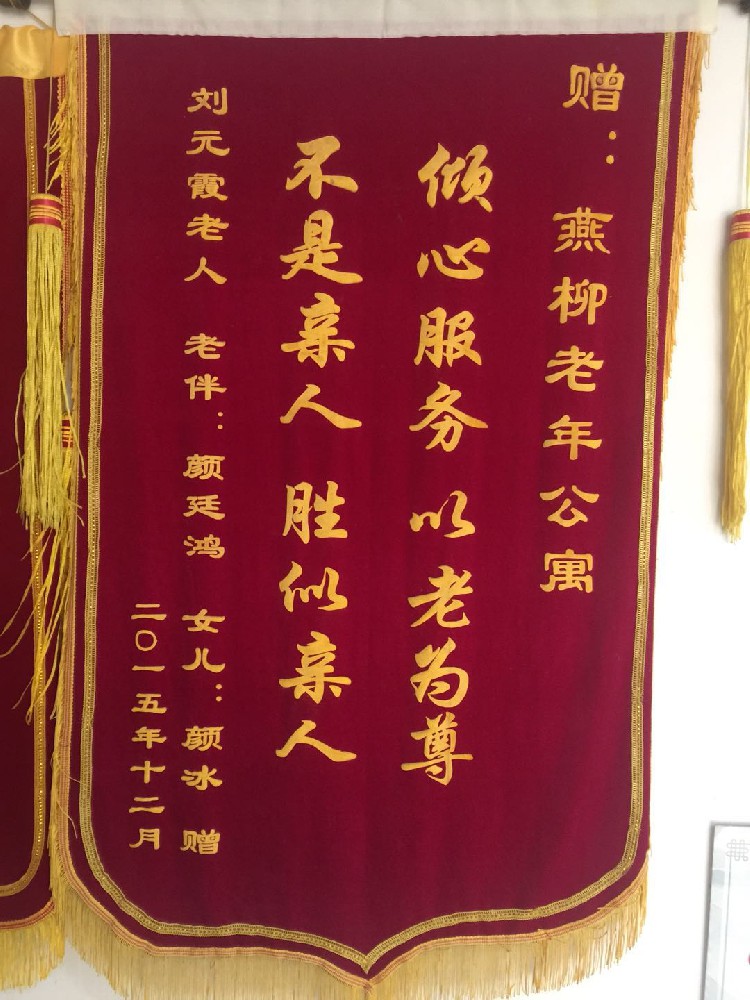 赠：燕柳老年公寓
倾心服务 以老为尊
不是亲人 胜似亲人
刘元霞老人 老伴：颜廷鸿 女儿：颜冰 赠
二〇一五年十二月